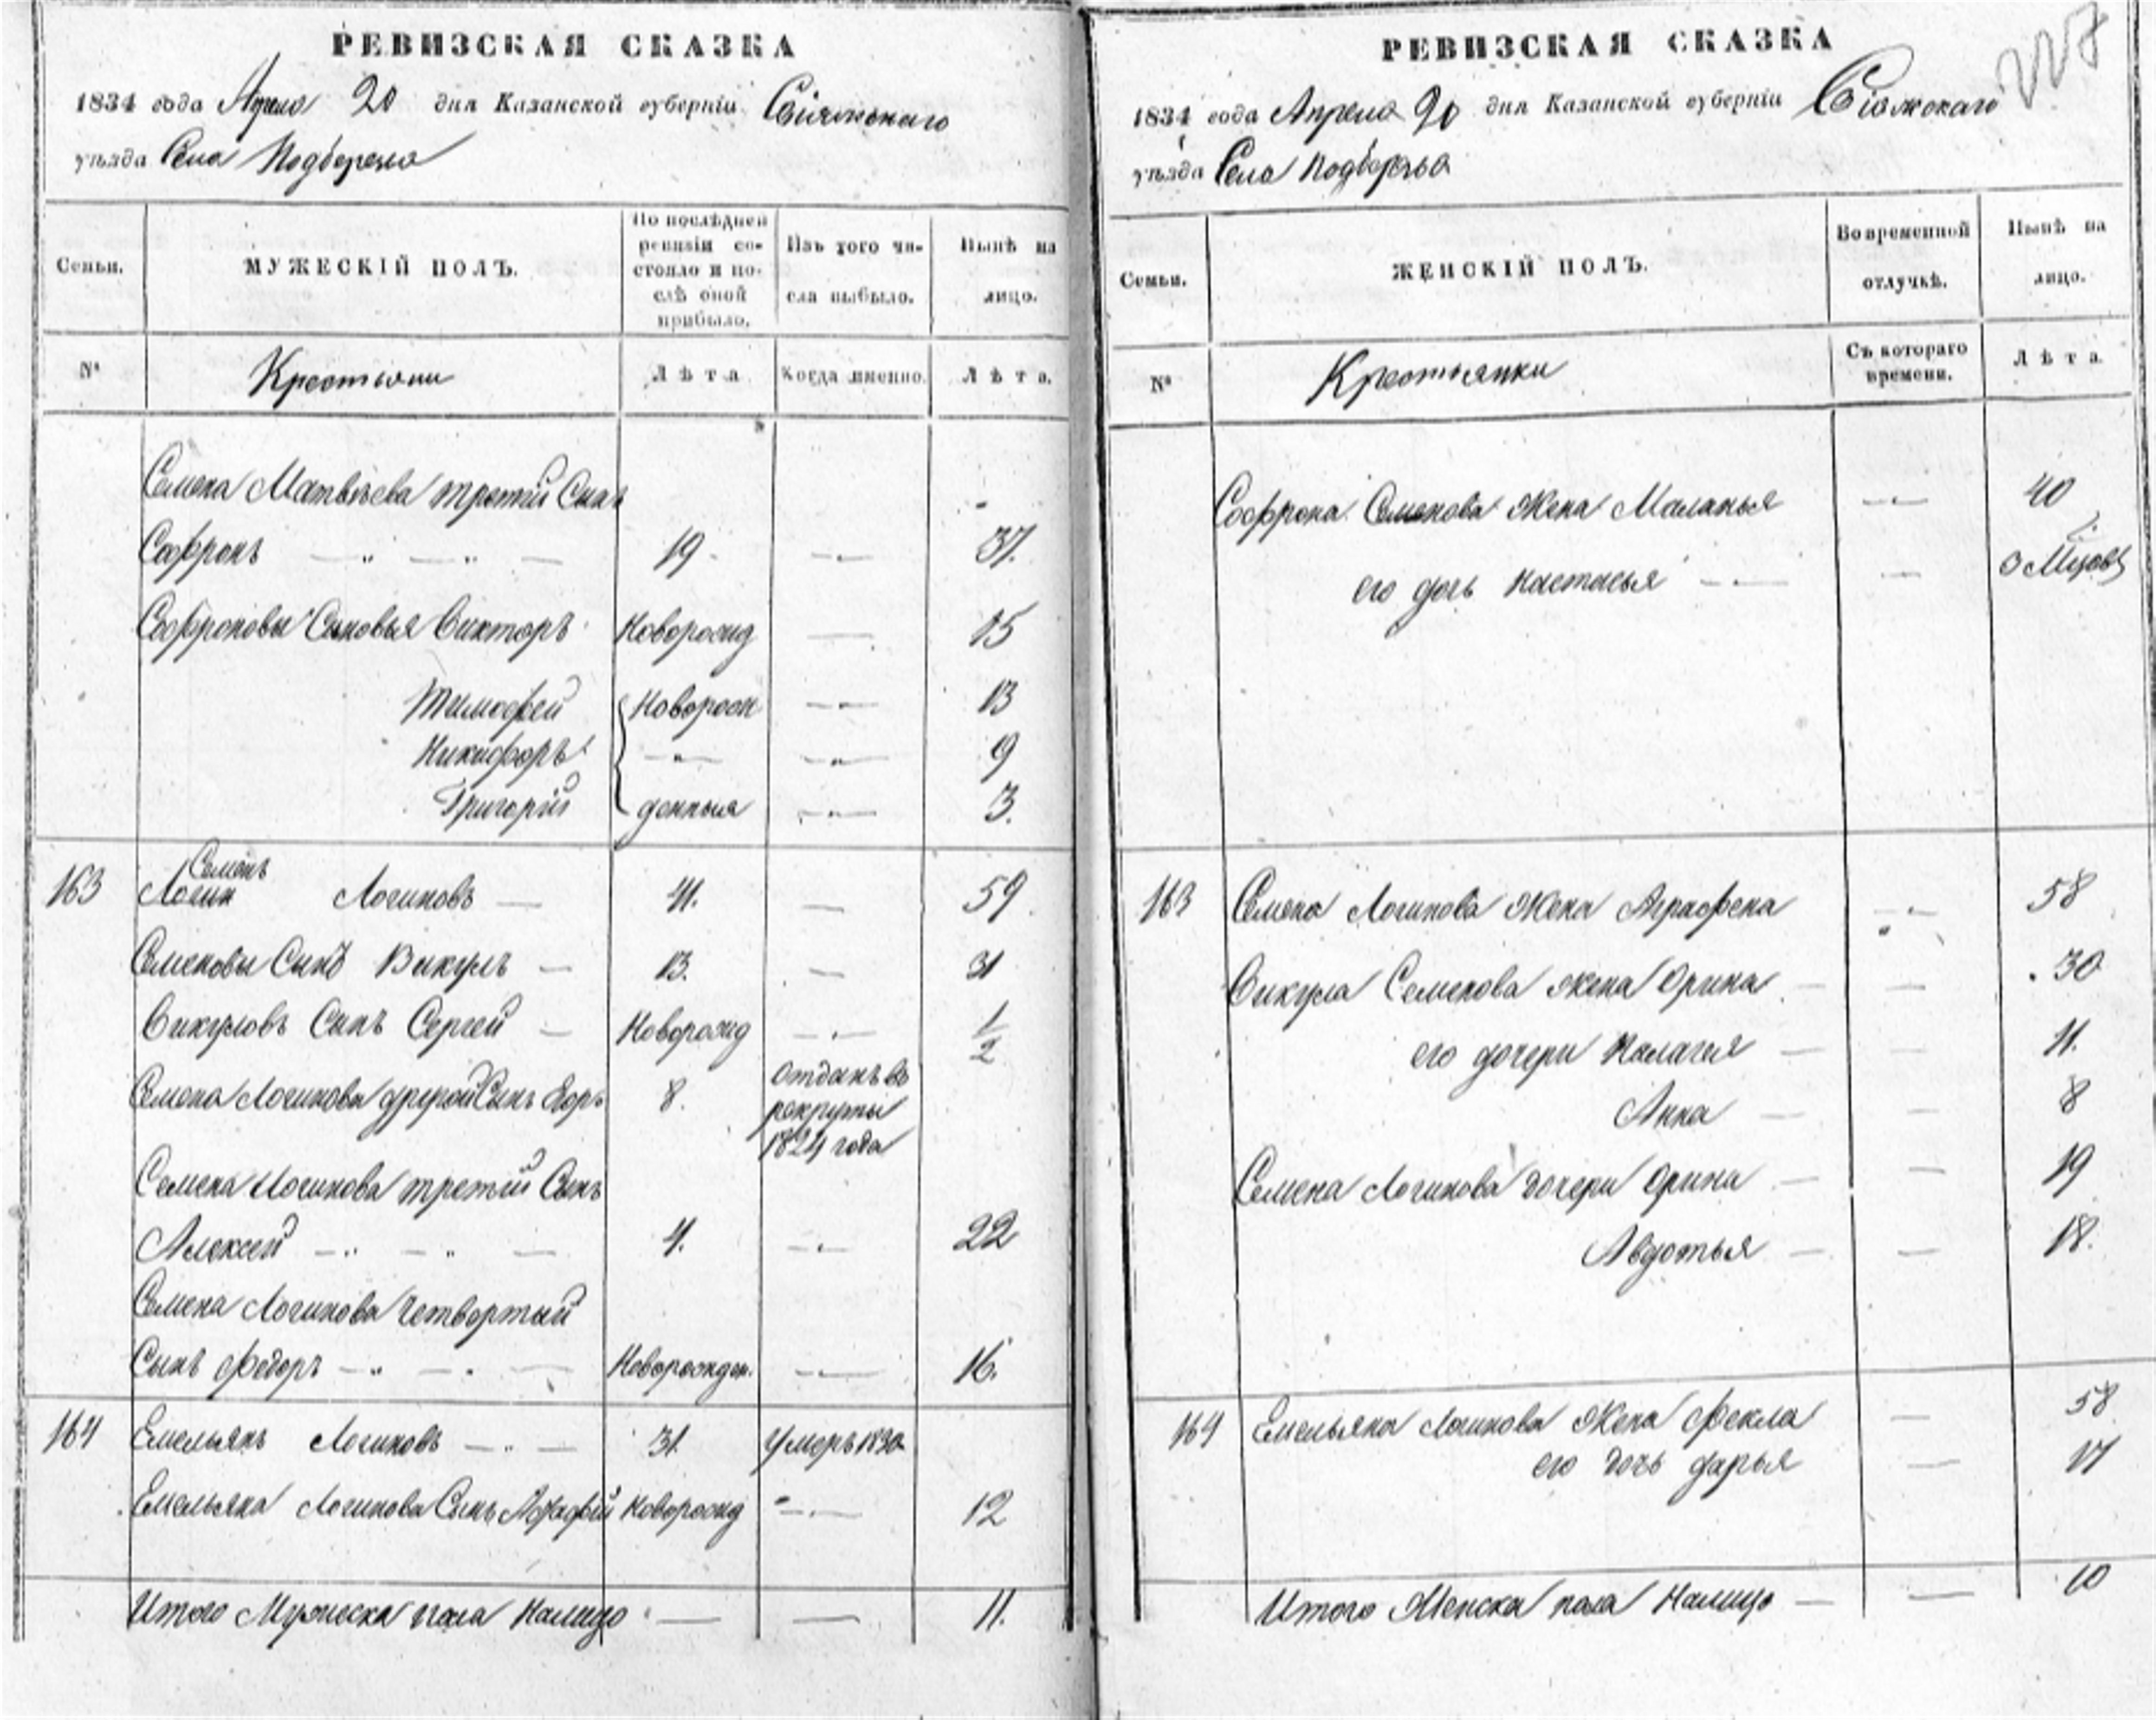 РЕВИЗСКАЯ СКАЗКА
1834 года Апреля 20 дня Казанской губерніи Свіяжскаго
уѣзда Села Подберезья
Семьи.
МУЖЕСКІЙ ПОЛЪ.
По послѣдней
ревизіи со-
стояло и по-
слѣ оной
прибыло.
Изъ того чи-
сла выбыло.
Нынѣ на
лицо.
№
Крестьяни
Лѣта
Когда именно.
Лѣта.
Семена Матвѣева третій Сынъ
Софронъ 19 37.
Софроновы Сыновья Викторъ Новорожд 15
Тимофей Новорож 13
Никифоръ 9
Григорій денныя 3.
Семенъ
163 Логин Логиновъ 41. 59.
Семеновы Сынъ Викулъ 13. 31
Викуловъ Сынъ Сергей Новорожд 1/2
Семена Логинова другой Сынъ Егоръ 8. отданъ въ
рекруты
1824 года
Семена Логинова третій Сынъ
Алексей 4. 22
Семена Логинова Четвертый
Сынъ Федоръ Новорожден. 16.
164 Емельянъ Логиновъ 31 умеръ 1830
Емельяна Логинова Сынъ Новорожд 12
Итого Мужеска пола Налицо 11.
РЕВИЗСКАЯ СКАЗКА
227
1834 года Апреля 20 дня Казанской губерніи Свіяжскаго
уѣзда Села Подберезья
Семьи.
ЖЕНСКІЙ ПОЛЪ.
Во временной
отлучкѣ.
Нынѣ на
лицо.
№
Крестьянки
Съ котораго
времени.
Лѣта
Софрона Семенова Жена Маланья 40
его дочь Настасья 3 Месяц
163 Семена Логинова Жена Аграфена 58
Викула Семенова жена Орина 30
его дочери Палагея 11.
Анна 8
Семена Логинова дочери Орина 19
Авдотья 18.
164 Емельяна Логинова Жена Фекла 58
его дочь Дарья 17
Итого Женска пола Налицо 10